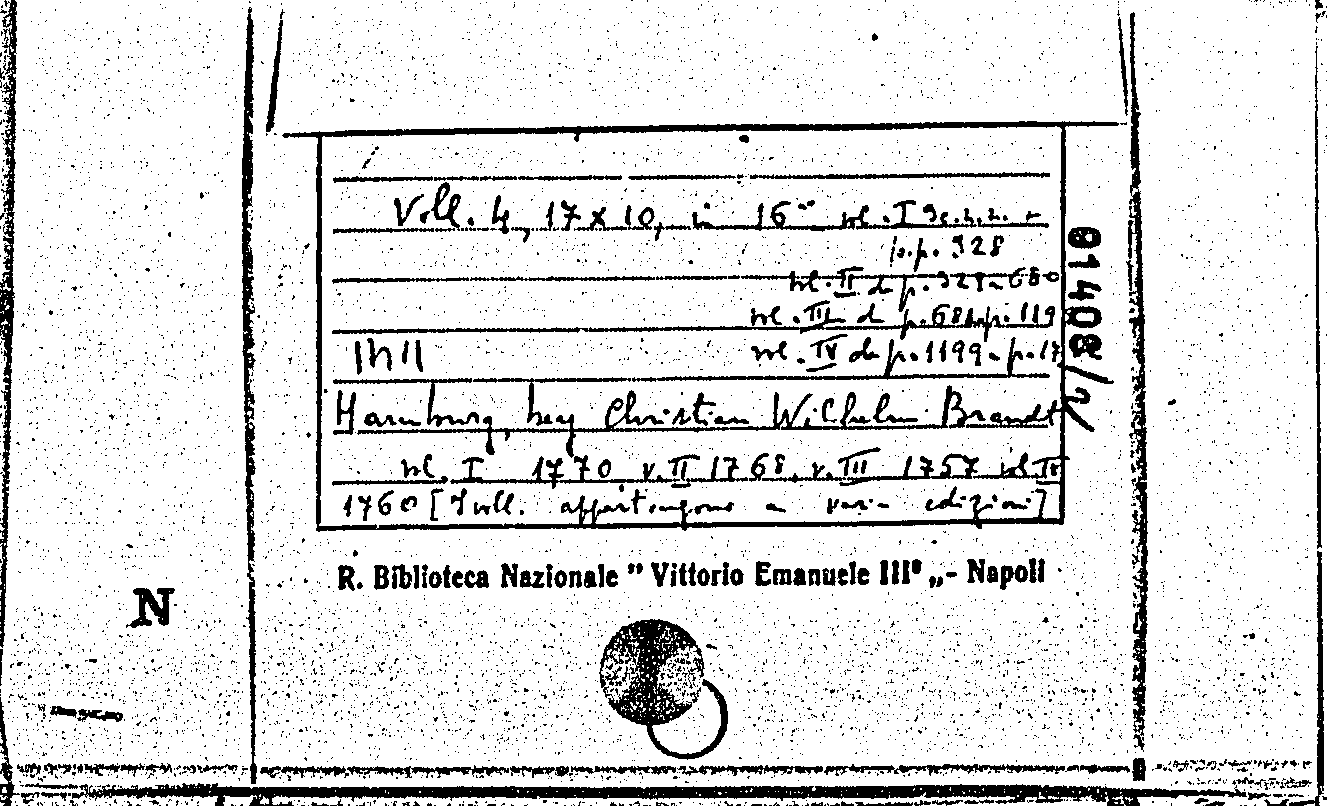 Voll. 4, 17 x 10, in 16° vol. I
p.p. 328
vol. II da p. 329 a 680
vol. III da p. 681 a p. 119
vol. IV da p. 1199 a p. 17
Hamburg, bey Christian Wilhelm Brandt
vol. I 1770 v. II 1768, v. III 1757 vol. IV
1760 [I voll. appartengono a varie edizioni]
01408/2
R. Biblioteca Nazionale " Vittorio Emanuele III° „- Napoli
N